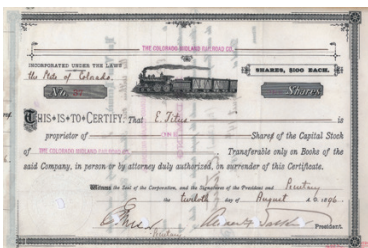 THE COLORADO MIDLAND RAILROAD CO.
INCORPORATED UNDER THE LAWS
the State of Colorado.
SHARES, $100 EACH.
No. 37
Shares
THIS•IS•TO•CERTIFY: That E. Titus is
proprietor of Shares of the Capital Stock
of THE COLORADO MIDLAND RAILROAD CO. Transferable only on Books of the
said Company, in person or by attorney duly authorized, on surrender of this Certificate.
Witness the Seal of the Corporation, and the Signatures of the President and
the twelfth day of August 1896.
President.